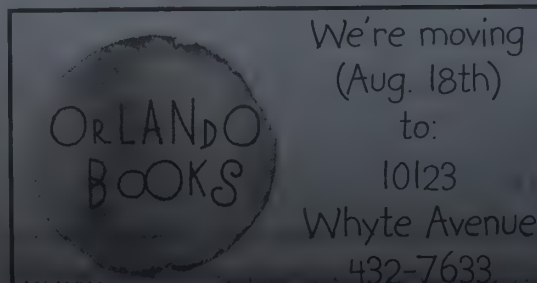 ORLANDO
BOOKS
We're moving
(Aug. 18th)
to:
10123
Whyte Avenue
432-7633